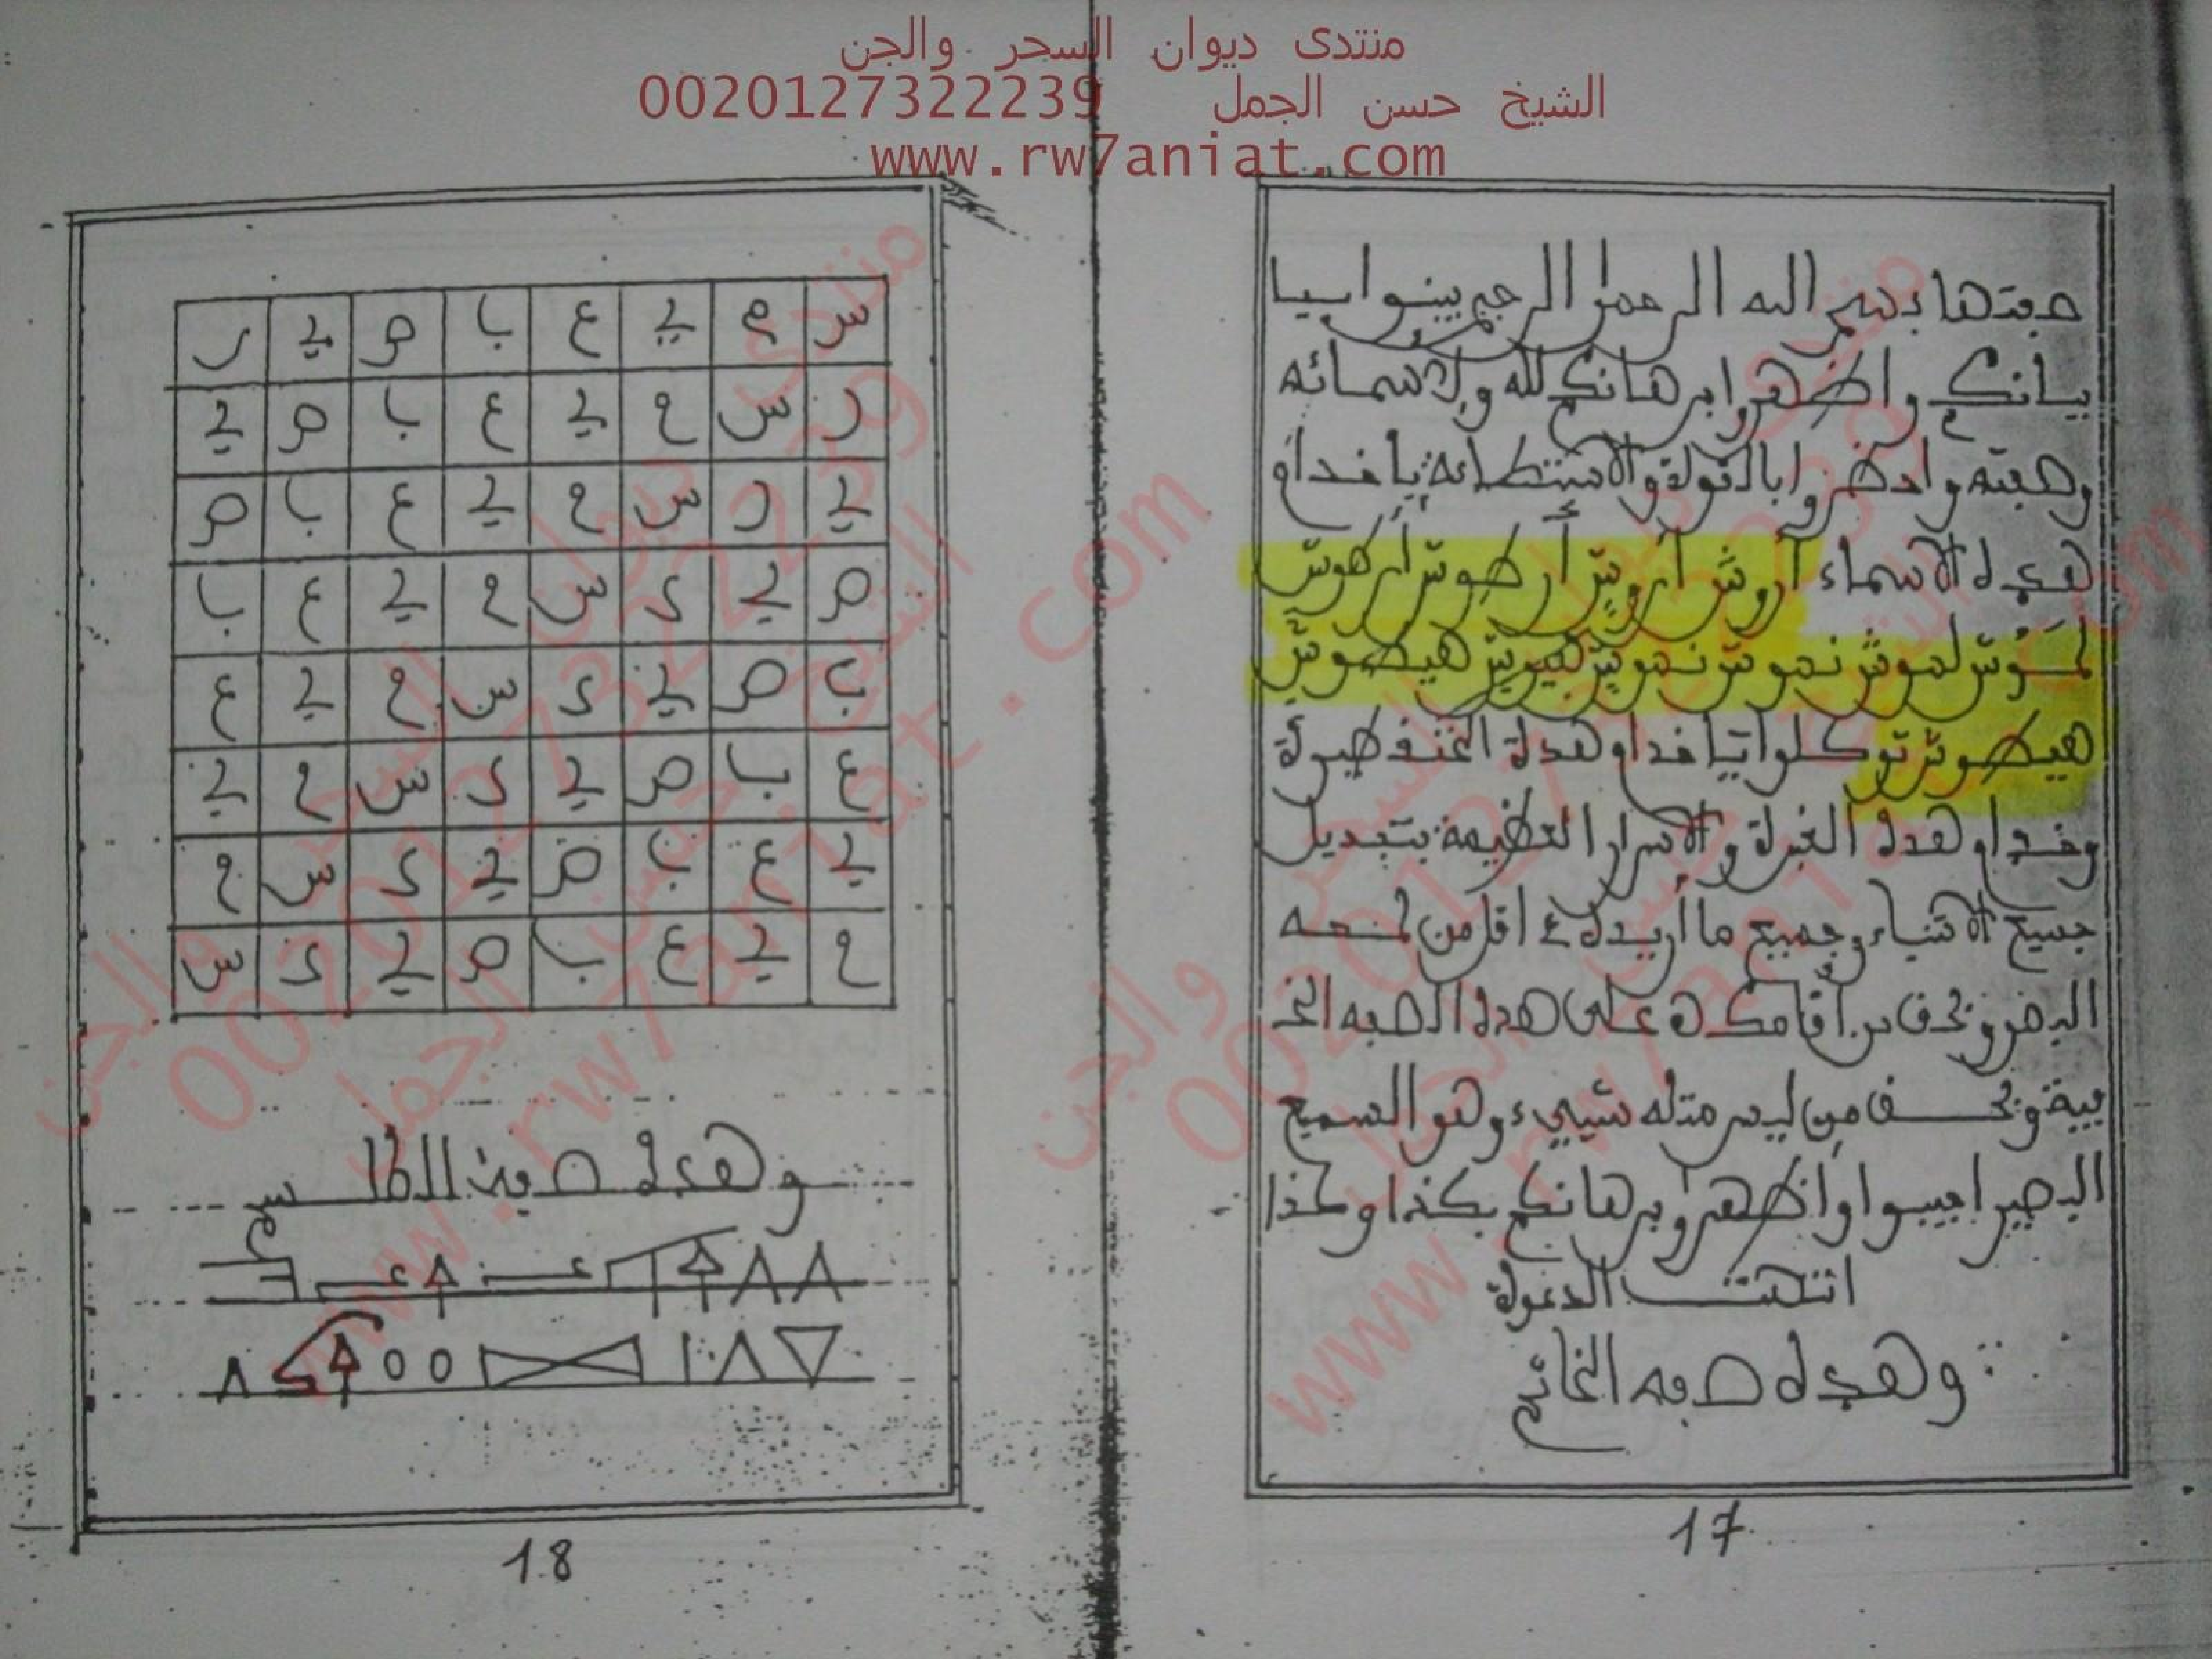 منتدى ديوان السحر والجن
الشيخ حسن الجمل 0020127322239
www.rw7aniat.com
صفتها بسم الله الرحمن الرحيم بينوا بيا
بيانكم واظهروا برهانكم لله ولاسمائه
وادضروا بالقولة يا خدام
هده الاسماء أروش أروش أرطوش أركوش
لموش نموش نموش هيوش هيطوش
هيطوش توكلوا يا خدام هده
وخدام هده والاسرار العظيمة بتبديل
جميع الاشياء وجميع ما أريده اقل من لمحه
البصر وبحق من أقامكم على هده
وبحق من ليس مثله شيء وهو السميع
البصير اجيبوا وأظهروا برهانكم بكذا وكذا
انتهت الدعوة
وهده صفه الخاتم
17
س ح ي ع ب ص ي ر
ر س ح ي ع ب ص ي
ي ر س ح ي ع ب ص
ص ي ر س ح ي ع ب
ب ص ي ر س ح ي ع
ع ب ص ي ر س ح ي
ي ع ب ص ي ر س ح
ح ي ع ب ص ي ر س
وهده صفة الطلسم
18